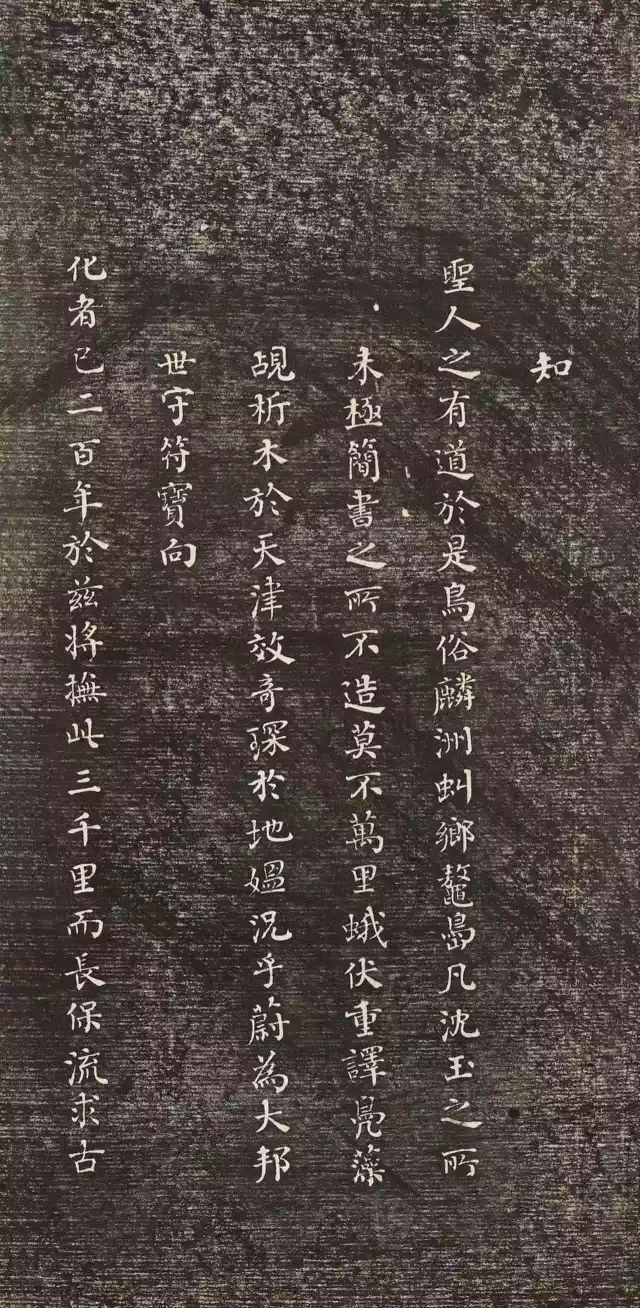 知
聖人之有道於是鳥俗麟洲虬鄉鼇嶋凡沈玉之所
未極簡書之所不造莫不萬里蛾伏重譯鳧藻
覘析木於天津效奇琛於地媼況乎蔚為大邦
世守符寶向
化者已二百年於茲將撫此三千里而長保流求古